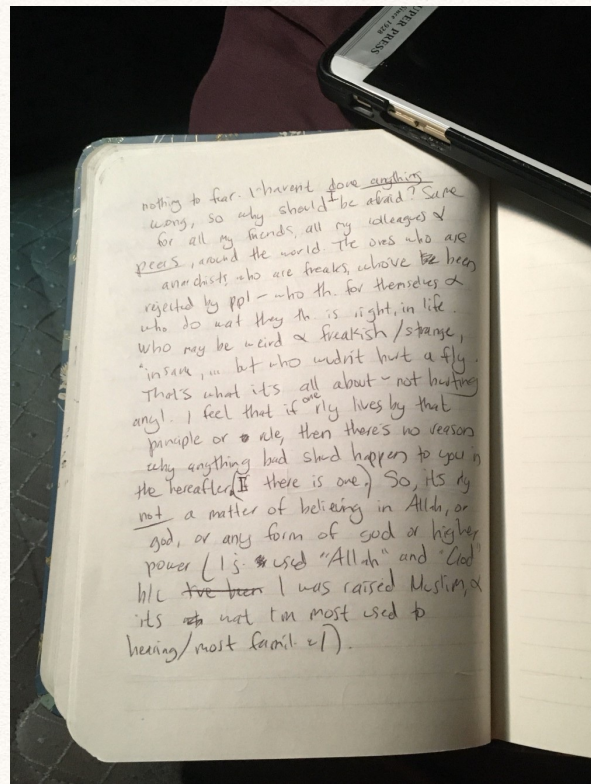 UPER PRESS
Since 1928
nothing to fear. I haven't done anything
wrong, so why should I be afraid? Same
for all my friends, all my colleagues &
peers, around the world. The ones who are
anarchists, who are freaks, who've been
rejected by ppl – who th. for themselves &
who do wat they th. is right, in life.
Who may be weird & freakish/strange,
"insane," ... but who wudn't hurt a fly.
That's what it's all about – not hurting
any1. I feel that if one rly lives by that
principle or rule, then there's no reason
why anything bad shud happen to you in
the hereafter (If there is one.) So, its rly
not a matter of believing in Allah, or
god, or any form of god or higher
power (I j. used "Allah" and "God"
b/c I've been I was raised Muslim, &
its wat I'm most used to
hearing/most famil. w/).